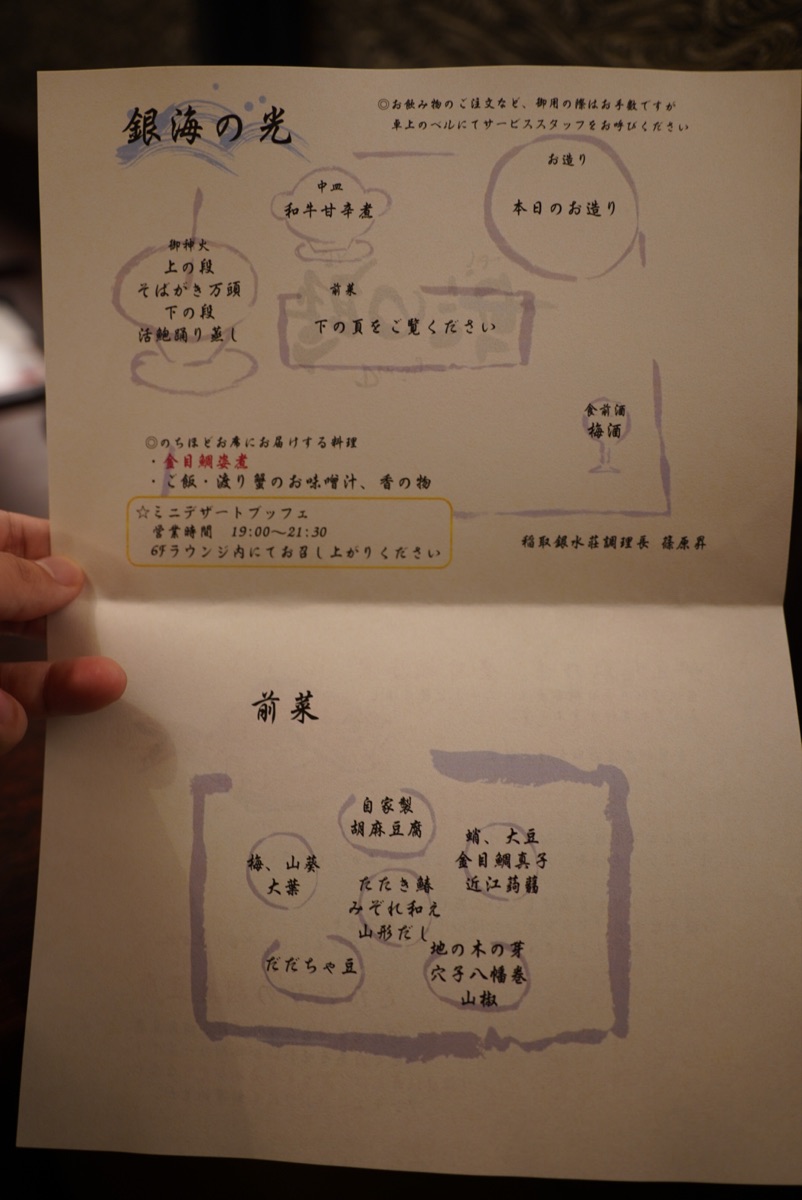 銀海の光
◎お飲み物のご注文など、御用の際はお手数ですが
卓上のベルにてサービススタッフをお呼びください
お造り
本日のお造り
中皿
和牛甘辛煮
御神火
上の段
そばがき万頭
下の段
活鮑踊り蒸し
前菜
下の頁をご覧ください
食前酒
梅酒
◎のちほどお席にお届けする料理
・金目鯛姿煮
・ご飯・渡り蟹のお味噌汁、香の物
☆ミニデザートブッフェ
営業時間 19:00～21:30
6Fラウンジ内にてお召し上がりください
稲取銀水荘調理長 篠原昇
前菜
自家製
胡麻豆腐
梅、山葵
大葉
蛸、大豆
金目鯛真子
近江蒟蒻
たたき鰆
みぞれ和え
山形だし
だだちゃ豆
地の木の芽
穴子八幡巻
山椒